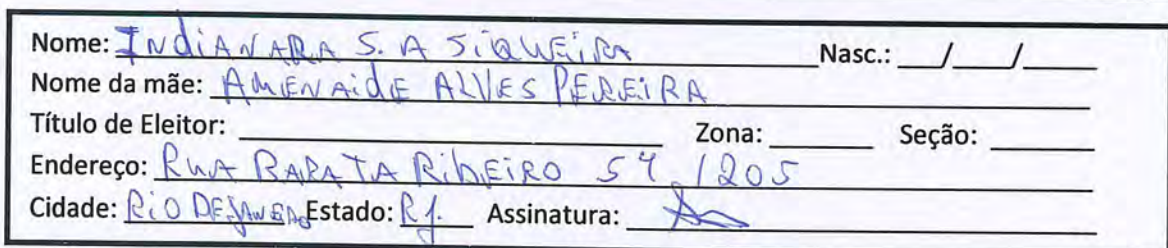 Nome: INdiANARA S. A SiQUEiRA Nasc.: ___/___/___
Nome da mãe: AMENAidE ALVES PEREiRA
Título de Eleitor: ____________ Zona: ______ Seção: ______
Endereço: RUA BARATA RibEiRO 54 /205
Cidade: RiO DE JANEiRO Estado: RJ. Assinatura: